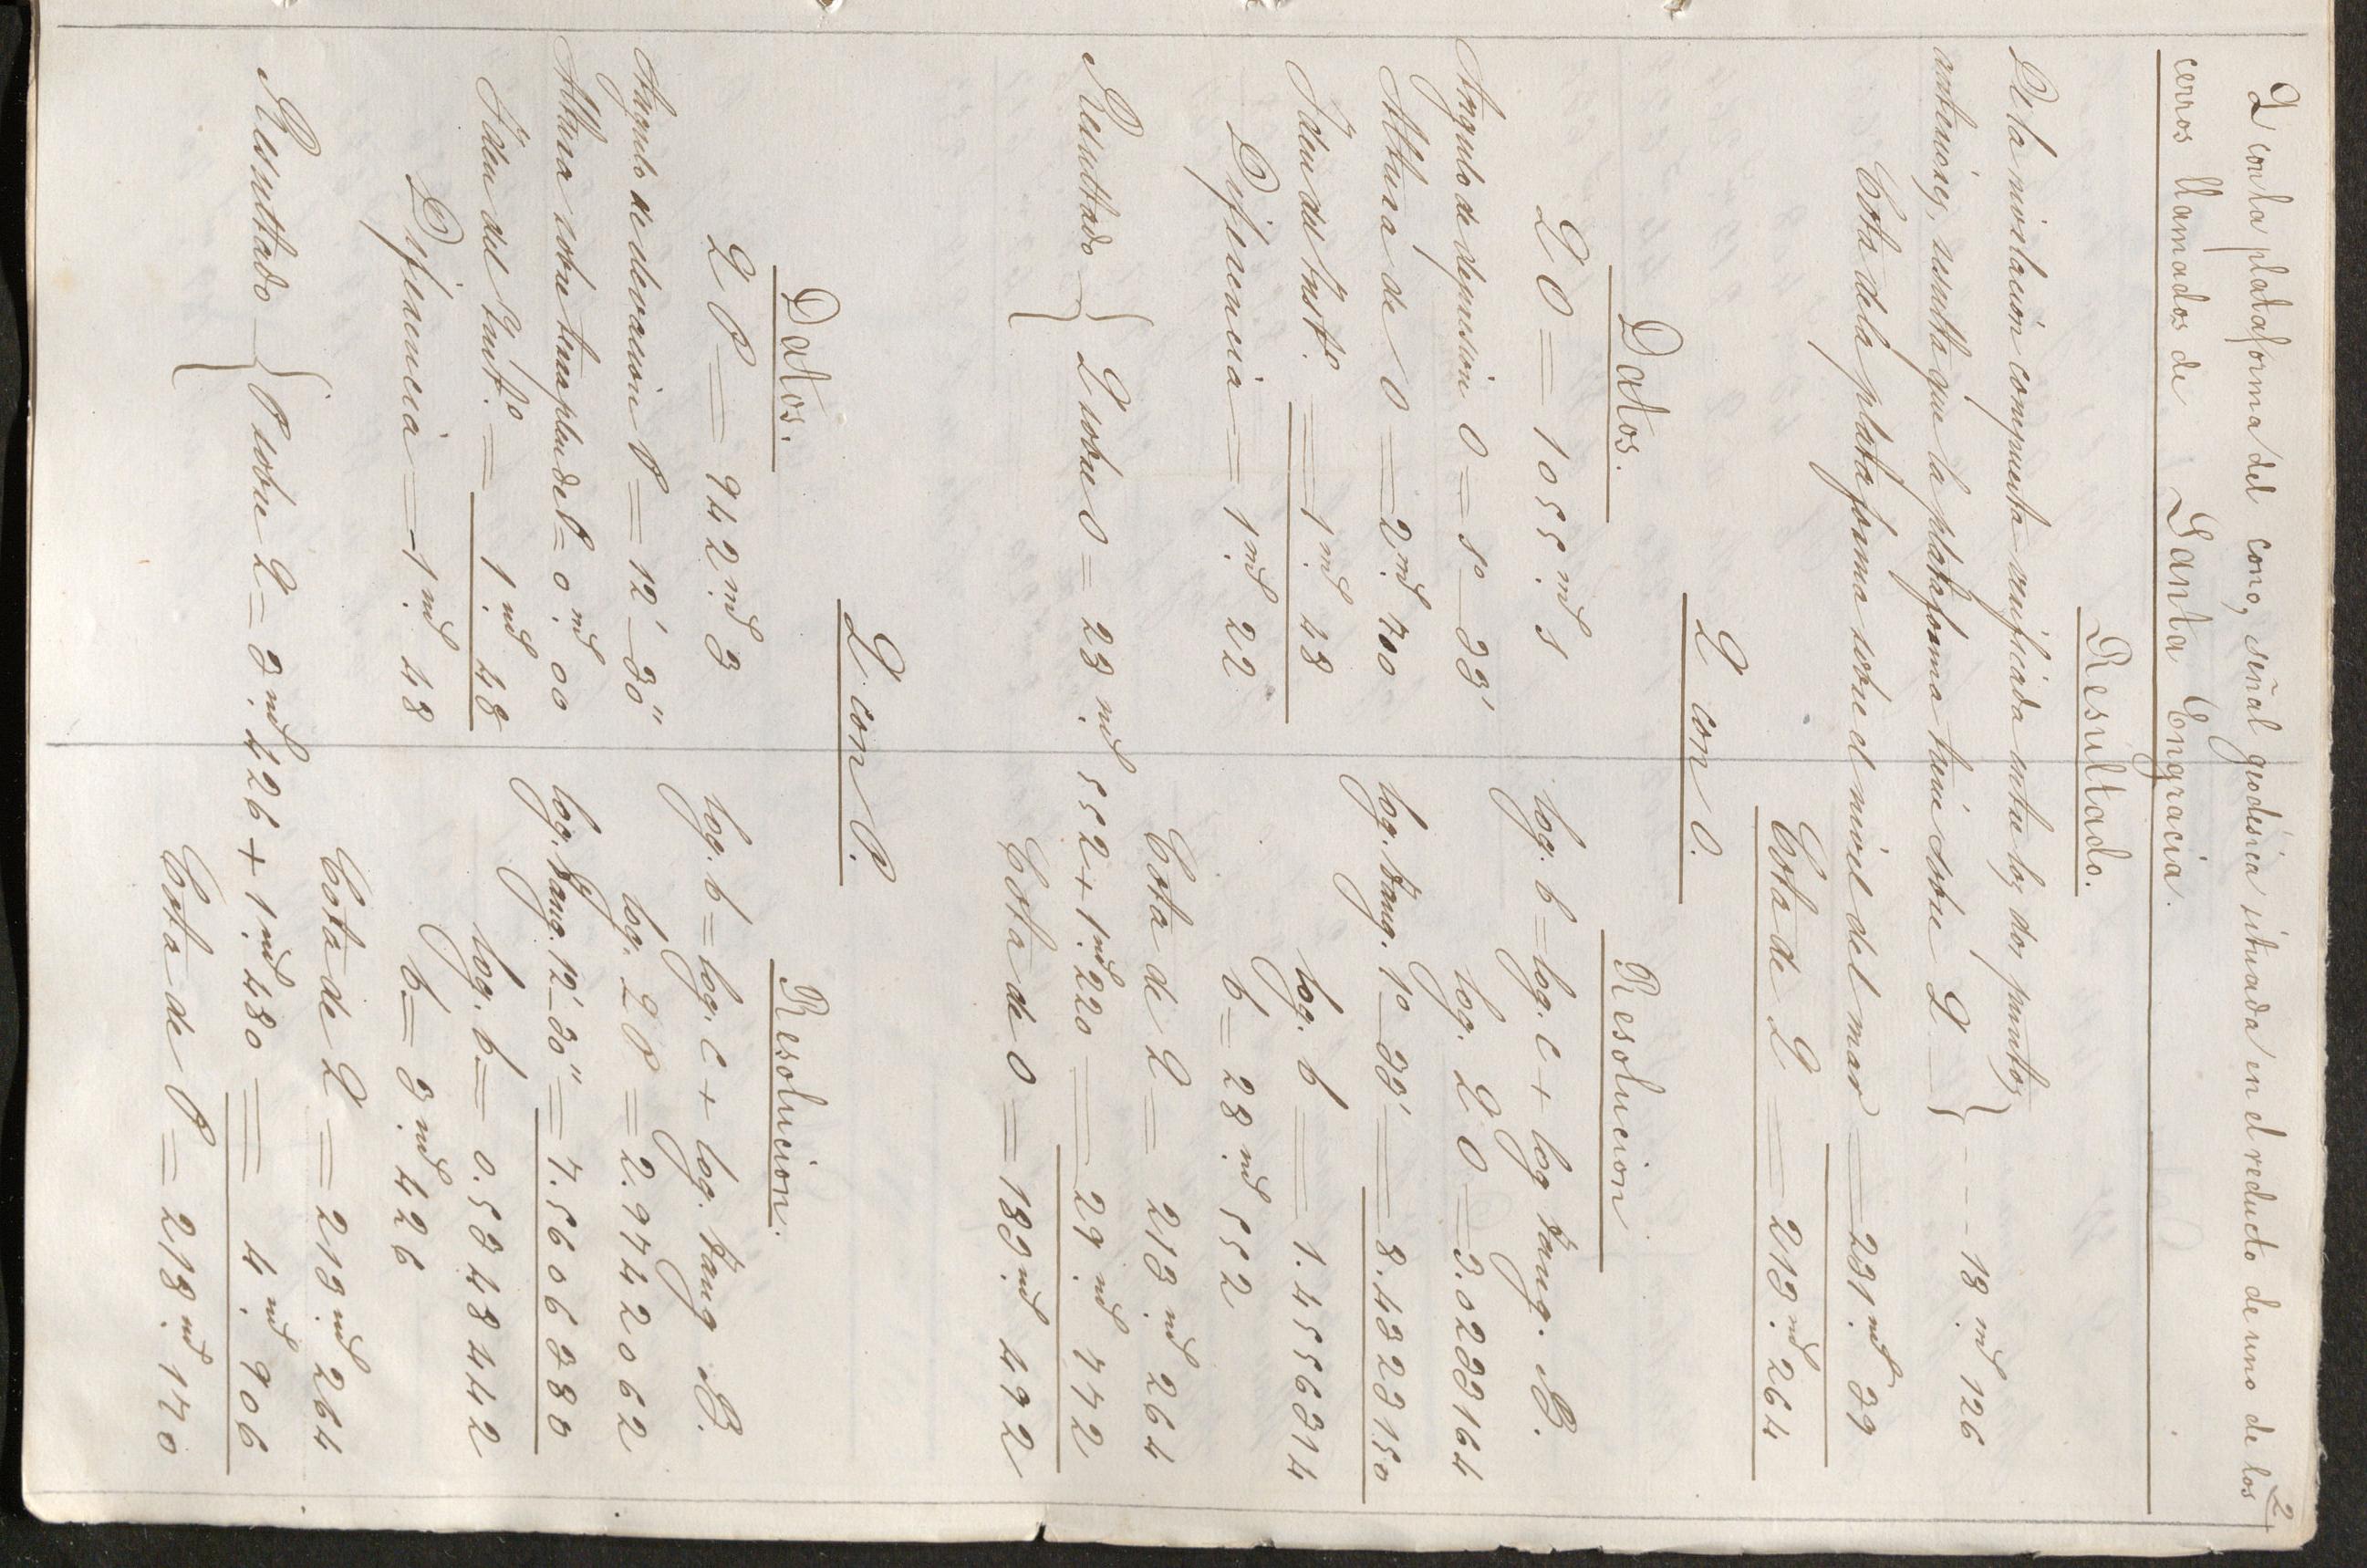 2
Q con la plataforma del cono, señal geodésica situada en el reducto de uno de los
cerros llamados de Santa Engracia.
Resultado.
De la nivelacion compuesta verificada entre los dos puntos
anteriores, resulta que la plataforma tiene sobre Q — } - - - 18.md 126
Cota de la plataforma sobre el nivel del mar = 231.md 39
Cota de Q = 213.md 264
Q con O.
Datos.
Resolucion
Q O = 1055.md 1
log. b = log. c + log tang. B.
Angulo de depresion O = 1º—33'
log. Q O = 3.0233164
Altura de O = 2.md 700
log. tang. 1º—33' = 8.4323150
Idem del Instº. = 1.md 48
log. b = 1.4556314
Diferencia = 1.md 22
b = 28.md 552
Cota de Q = 213.md 264
Resultado — { Q sobre O = 28.md 552 + 1.md 220 = 29.md 772
Cota de O = 183.md 492
Q con P.
Datos.
Resolucion.
Q P = 942.md 3
log. b = log. c + log. tang B.
Angulo de elevacion P = 12'—30"
log. Q P = 2.9742062
Altura sobre tierra plud de P = 0.md 00
log. tang. 12'—30" = 7.5606380
Idem del Instº. = 1.md 48
log. b = 0.5348442
Diferencia = 1.md 48
b = 3.md 426
Cota de Q = 213.md 264
Resultado — { P sobre Q = 3.md 426 + 1.md 480 = 4.md 906
Cota de P = 218.md 170